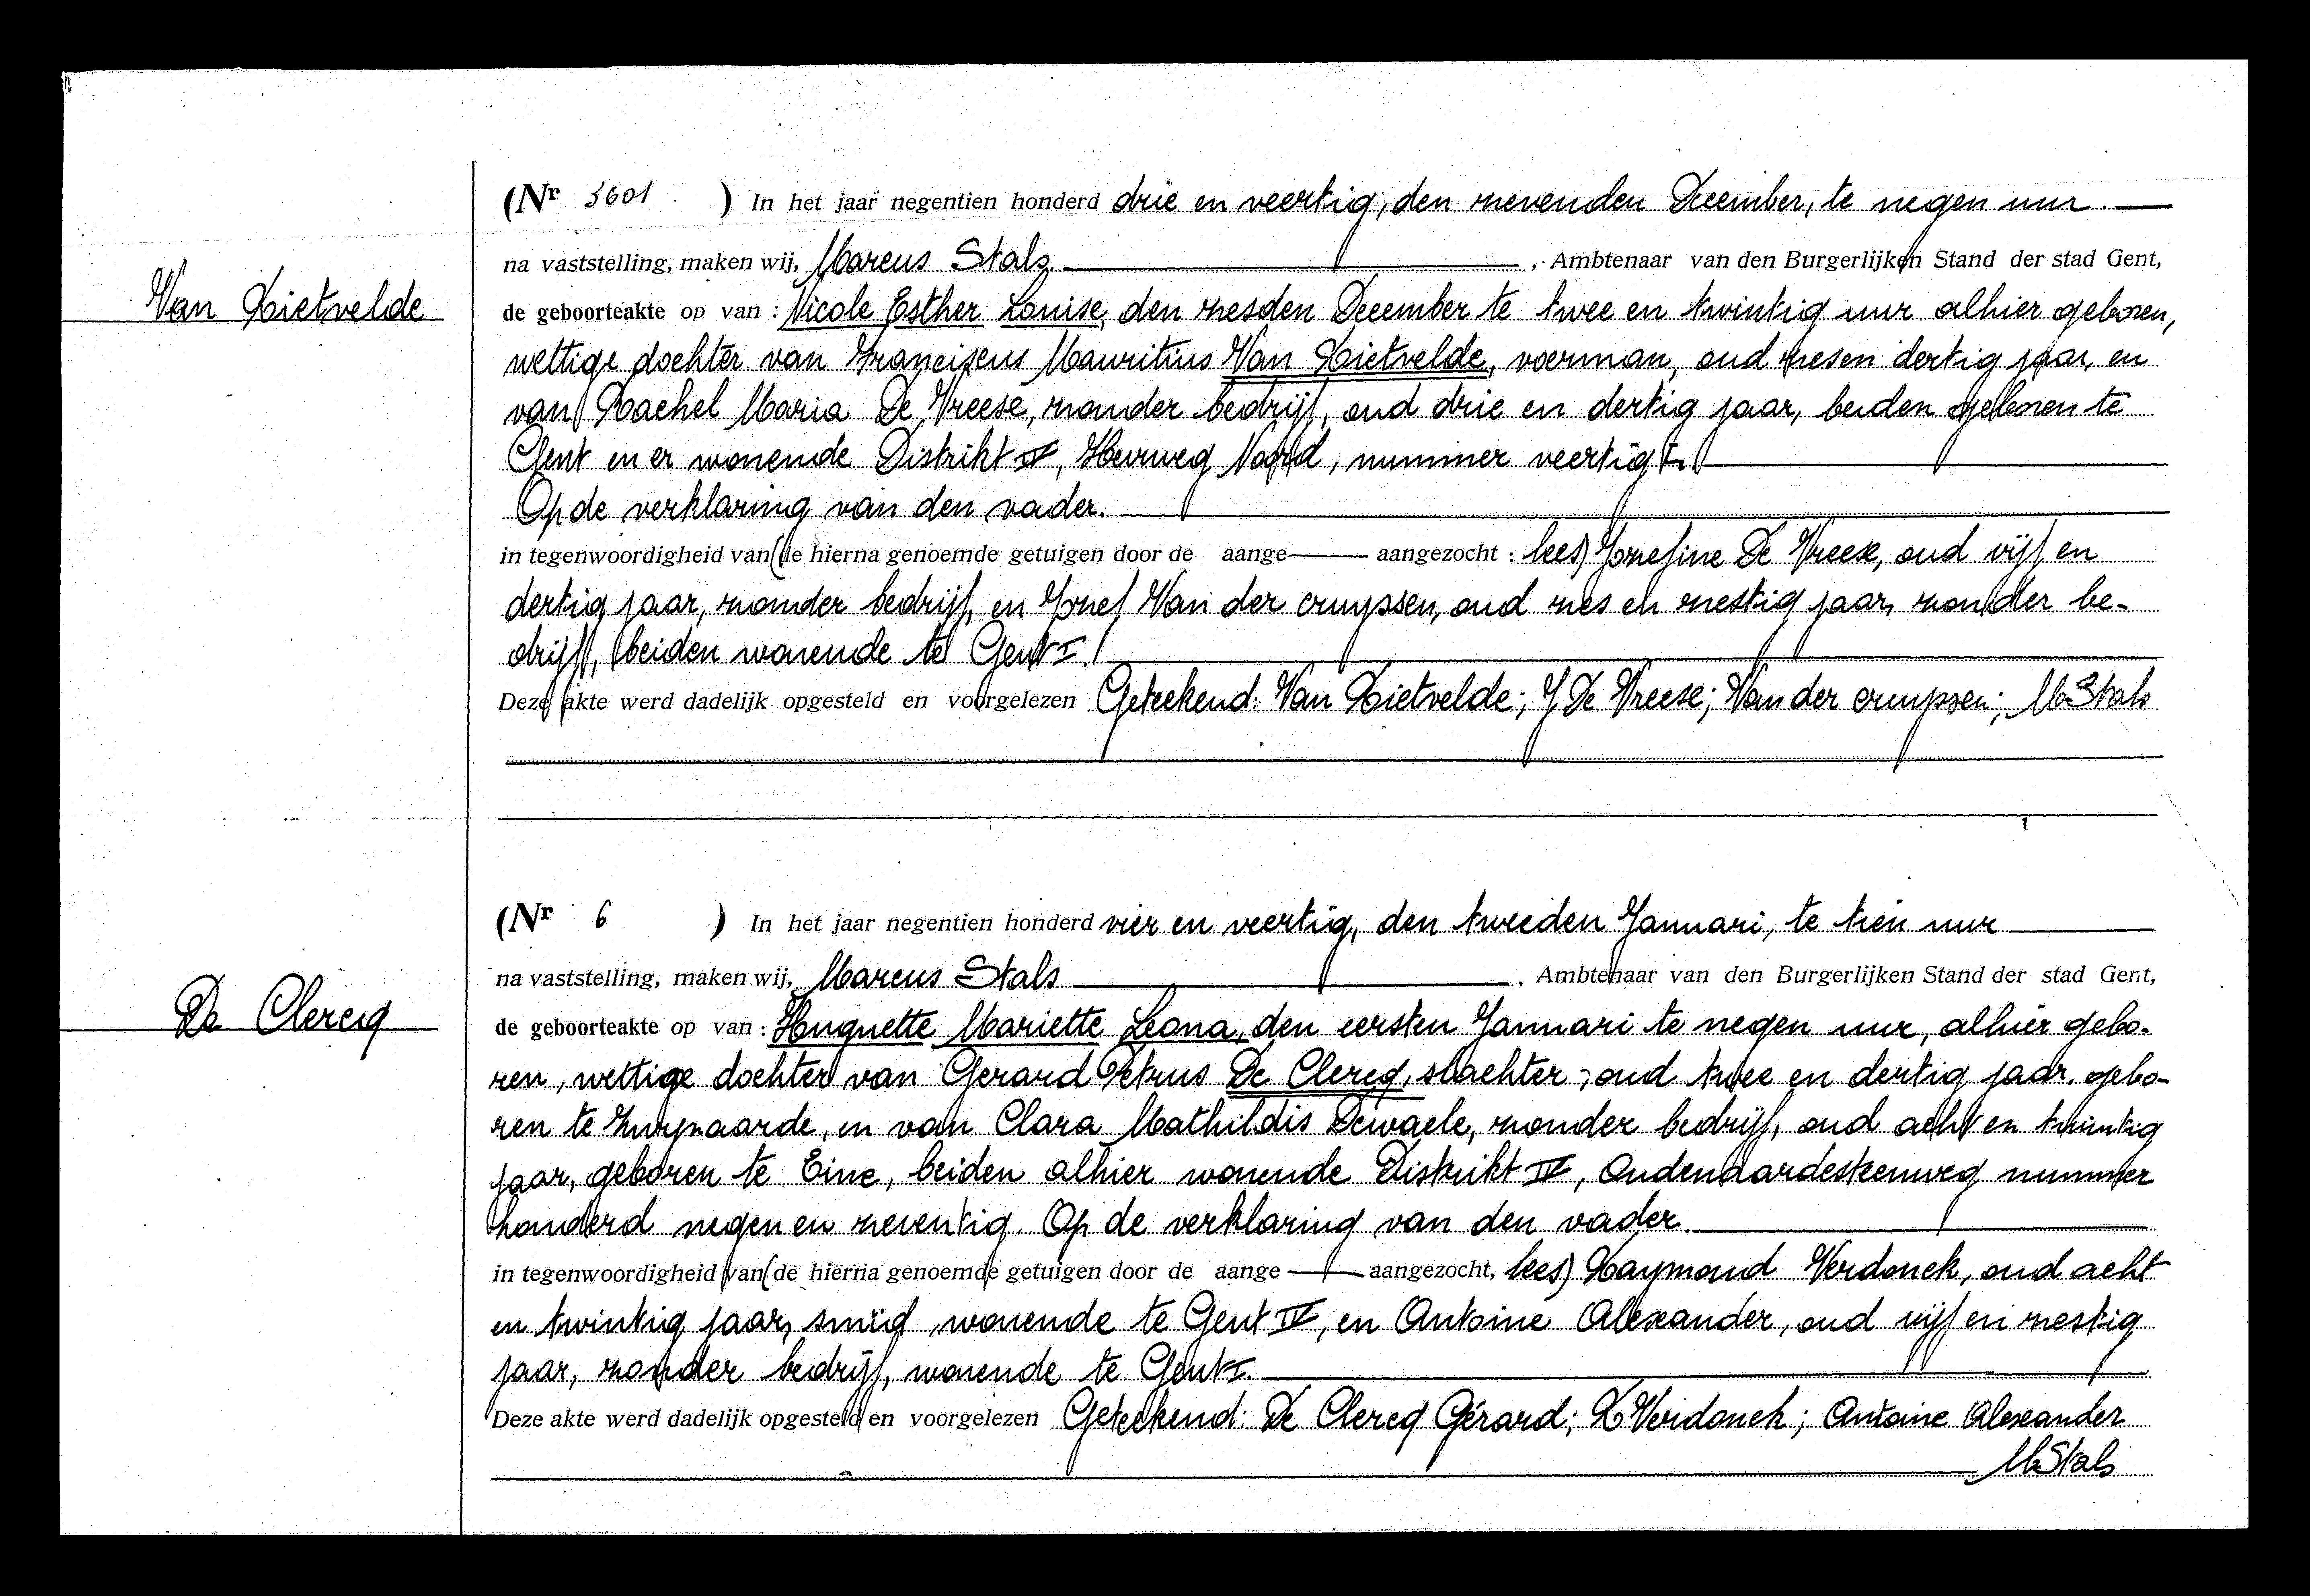 (Nr 3601 ) In het jaar negentien honderd drie en veertig, den zevenden December, te negen uur.
na vaststelling, maken wij, Marcus Stals , Ambtenaar van den Burgerlijken Stand der stad Gent,
Van Rietvelde
de geboorteakte op van : Nicole Esther Louise, den zesden December te twee en twintig uur alhier geboren,
wettige dochter van Franciscus Mauritius Van Rietvelde, voerman, oud zesen dertig jaar, en
van Rachel Maria De Vreese, zonder bedrijf, oud drie en dertig jaar, beiden geboren te
Gent en er wonende Distrikt IV, Heirweg Noord, nummer veertig
Op de verklaring van den vader.
in tegenwoordigheid van (de hierna genoemde getuigen door de aange— aangezocht : lees) Jozefine De Vreese, oud vijf en
dertig jaar, zonder bedrijf, en Jozef Van der cruyssen, oud zes en zestig jaar, zonder be-
drijf, beiden wonende te Gent I.
Deze akte werd dadelijk opgesteld en voorgelezen Geteekend: Van Rietvelde; J De Vreese; Van der cruyssen; M Stals
(Nr 6 ) In het jaar negentien honderd vier en veertig, den tweeden Januari, te tien uur
na vaststelling, maken wij, Marcus Stals , Ambtenaar van den Burgerlijken Stand der stad Gent,
De Clercq
de geboorteakte op van : Huguette Mariette Leona, den eersten Januari te negen uur, alhier gebo-
ren, wettige dochter van Gerard Petrus De Clercq, slachter, oud twee en dertig jaar, gebo-
ren te Knrpaarde, en van Clara Mathildis Dewaele, zonder bedrijf, oud acht en twintig
jaar, geboren te Eine, beiden alhier wonende Distrikt IV, Oudenaardesteenweg nummer
honderd negen en zeventig. Op de verklaring van den vader.
in tegenwoordigheid van (de hierna genoemde getuigen door de aange— aangezocht, lees) Raymond Verdonck, oud acht
en twintig jaar, smid, wonende te Gent IV, en Antoine Alexander, oud vijf en zestig
jaar, zonder bedrijf, wonende te Gent I.
Deze akte werd dadelijk opgesteld en voorgelezen Geteekend: De Clercq Gérard; R Verdonck; Antoine Alexander
M Stals